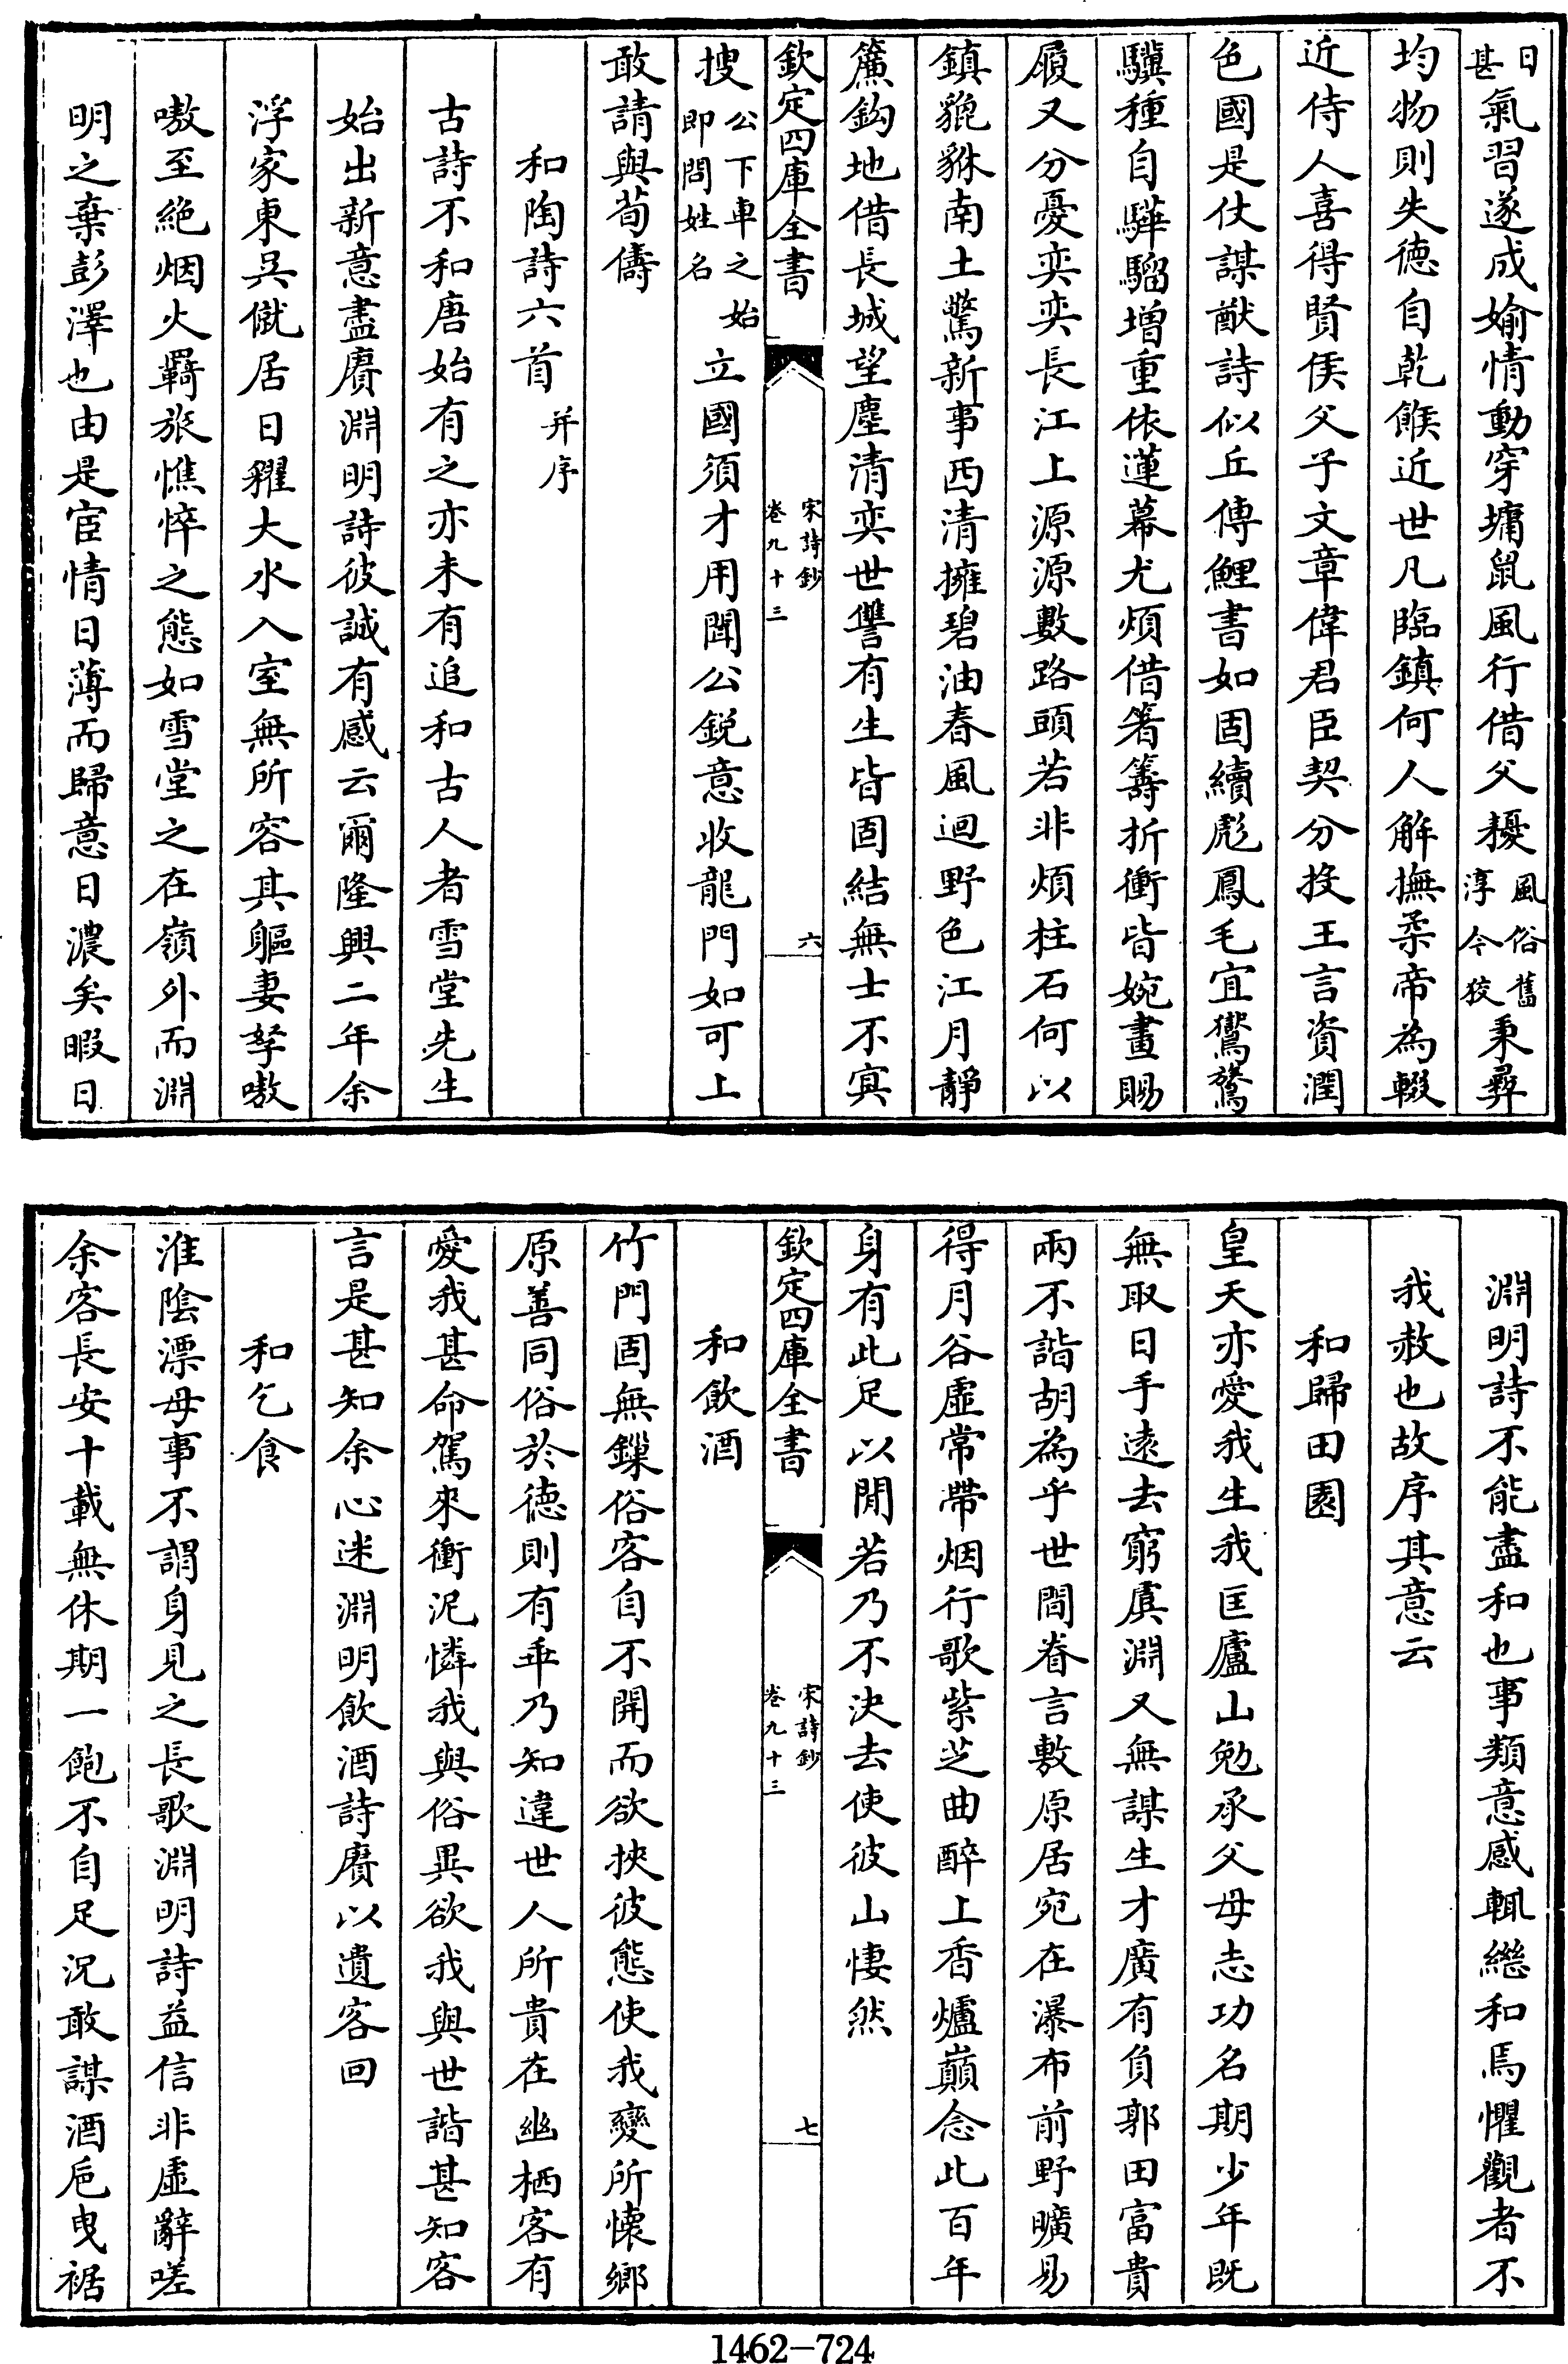 日甚氣習遂成媮情動穿墉鼠風行借父耰風俗舊淳今狡秉彛
均物則失徳自乾餱近世凡臨鎮何人解撫柔帝為輟
近侍人喜得賢侯父子文章偉君臣契分投王言資潤
色國是仗謀猷詩似丘傳鯉書如固續彪鳳毛宜鸑鷟
驥種自驊騮增重依蓮幕尤煩借箸籌折衝皆婉畫賜
履又分憂奕奕長江上源源數路頭若非煩柱石何以
鎮貔貅南土驚新事西清擁碧油春風迴野色江月靜
簾鈎地借長城望塵清奕世讐有生皆固結無士不㝠
欽定四庫全書
宋詩鈔
卷九十三
六
搜公下車之始即問姓名立國須才用聞公鋭意收龍門如可上
敢請與荀儔
和陶詩六首并序
古詩不和唐始有之亦未有追和古人者雪堂先生
始出新意盡賡淵明詩彼誠有感云爾隆興二年余
浮家東吳僦居日糴大水入室無所容其軀妻孥嗷
嗷至絶烟火羇旅憔悴之態如雪堂之在嶺外而淵
明之棄彭澤也由是宦情日薄而歸意日濃矣暇日
淵明詩不能盡和也事類意感輒繼和焉懼觀者不
我赦也故序其意云
和歸田園
皇天亦愛我生我匡廬山勉承父母志功名期少年既
無取日手逺去窮虞淵又無謀生才廣有負郭田富貴
兩不諧胡為乎世間眷言敷原居宛在瀑布前野曠易
得月谷虛常帶烟行歌紫芝曲醉上香爐巔念此百年
身有此足以閒若乃不決去使彼山悽然
欽定四庫全書
宋詩鈔
卷九十三
七
和飲酒
竹門固無鏁俗客自不開而欲挾彼態使我變所懐鄉
原善同俗於徳則有乖乃知違世人所貴在幽栖客有
愛我甚命駕來衝泥憐我與俗異欲我與世諧甚知客
言是甚知余心迷淵明飲酒詩賡以遺客回
和乞食
淮隂漂母事不謂身見之長歌淵明詩益信非虛辭嗟
余客長安十載無休期一飽不自足況敢謀酒巵曳裾
1462-724